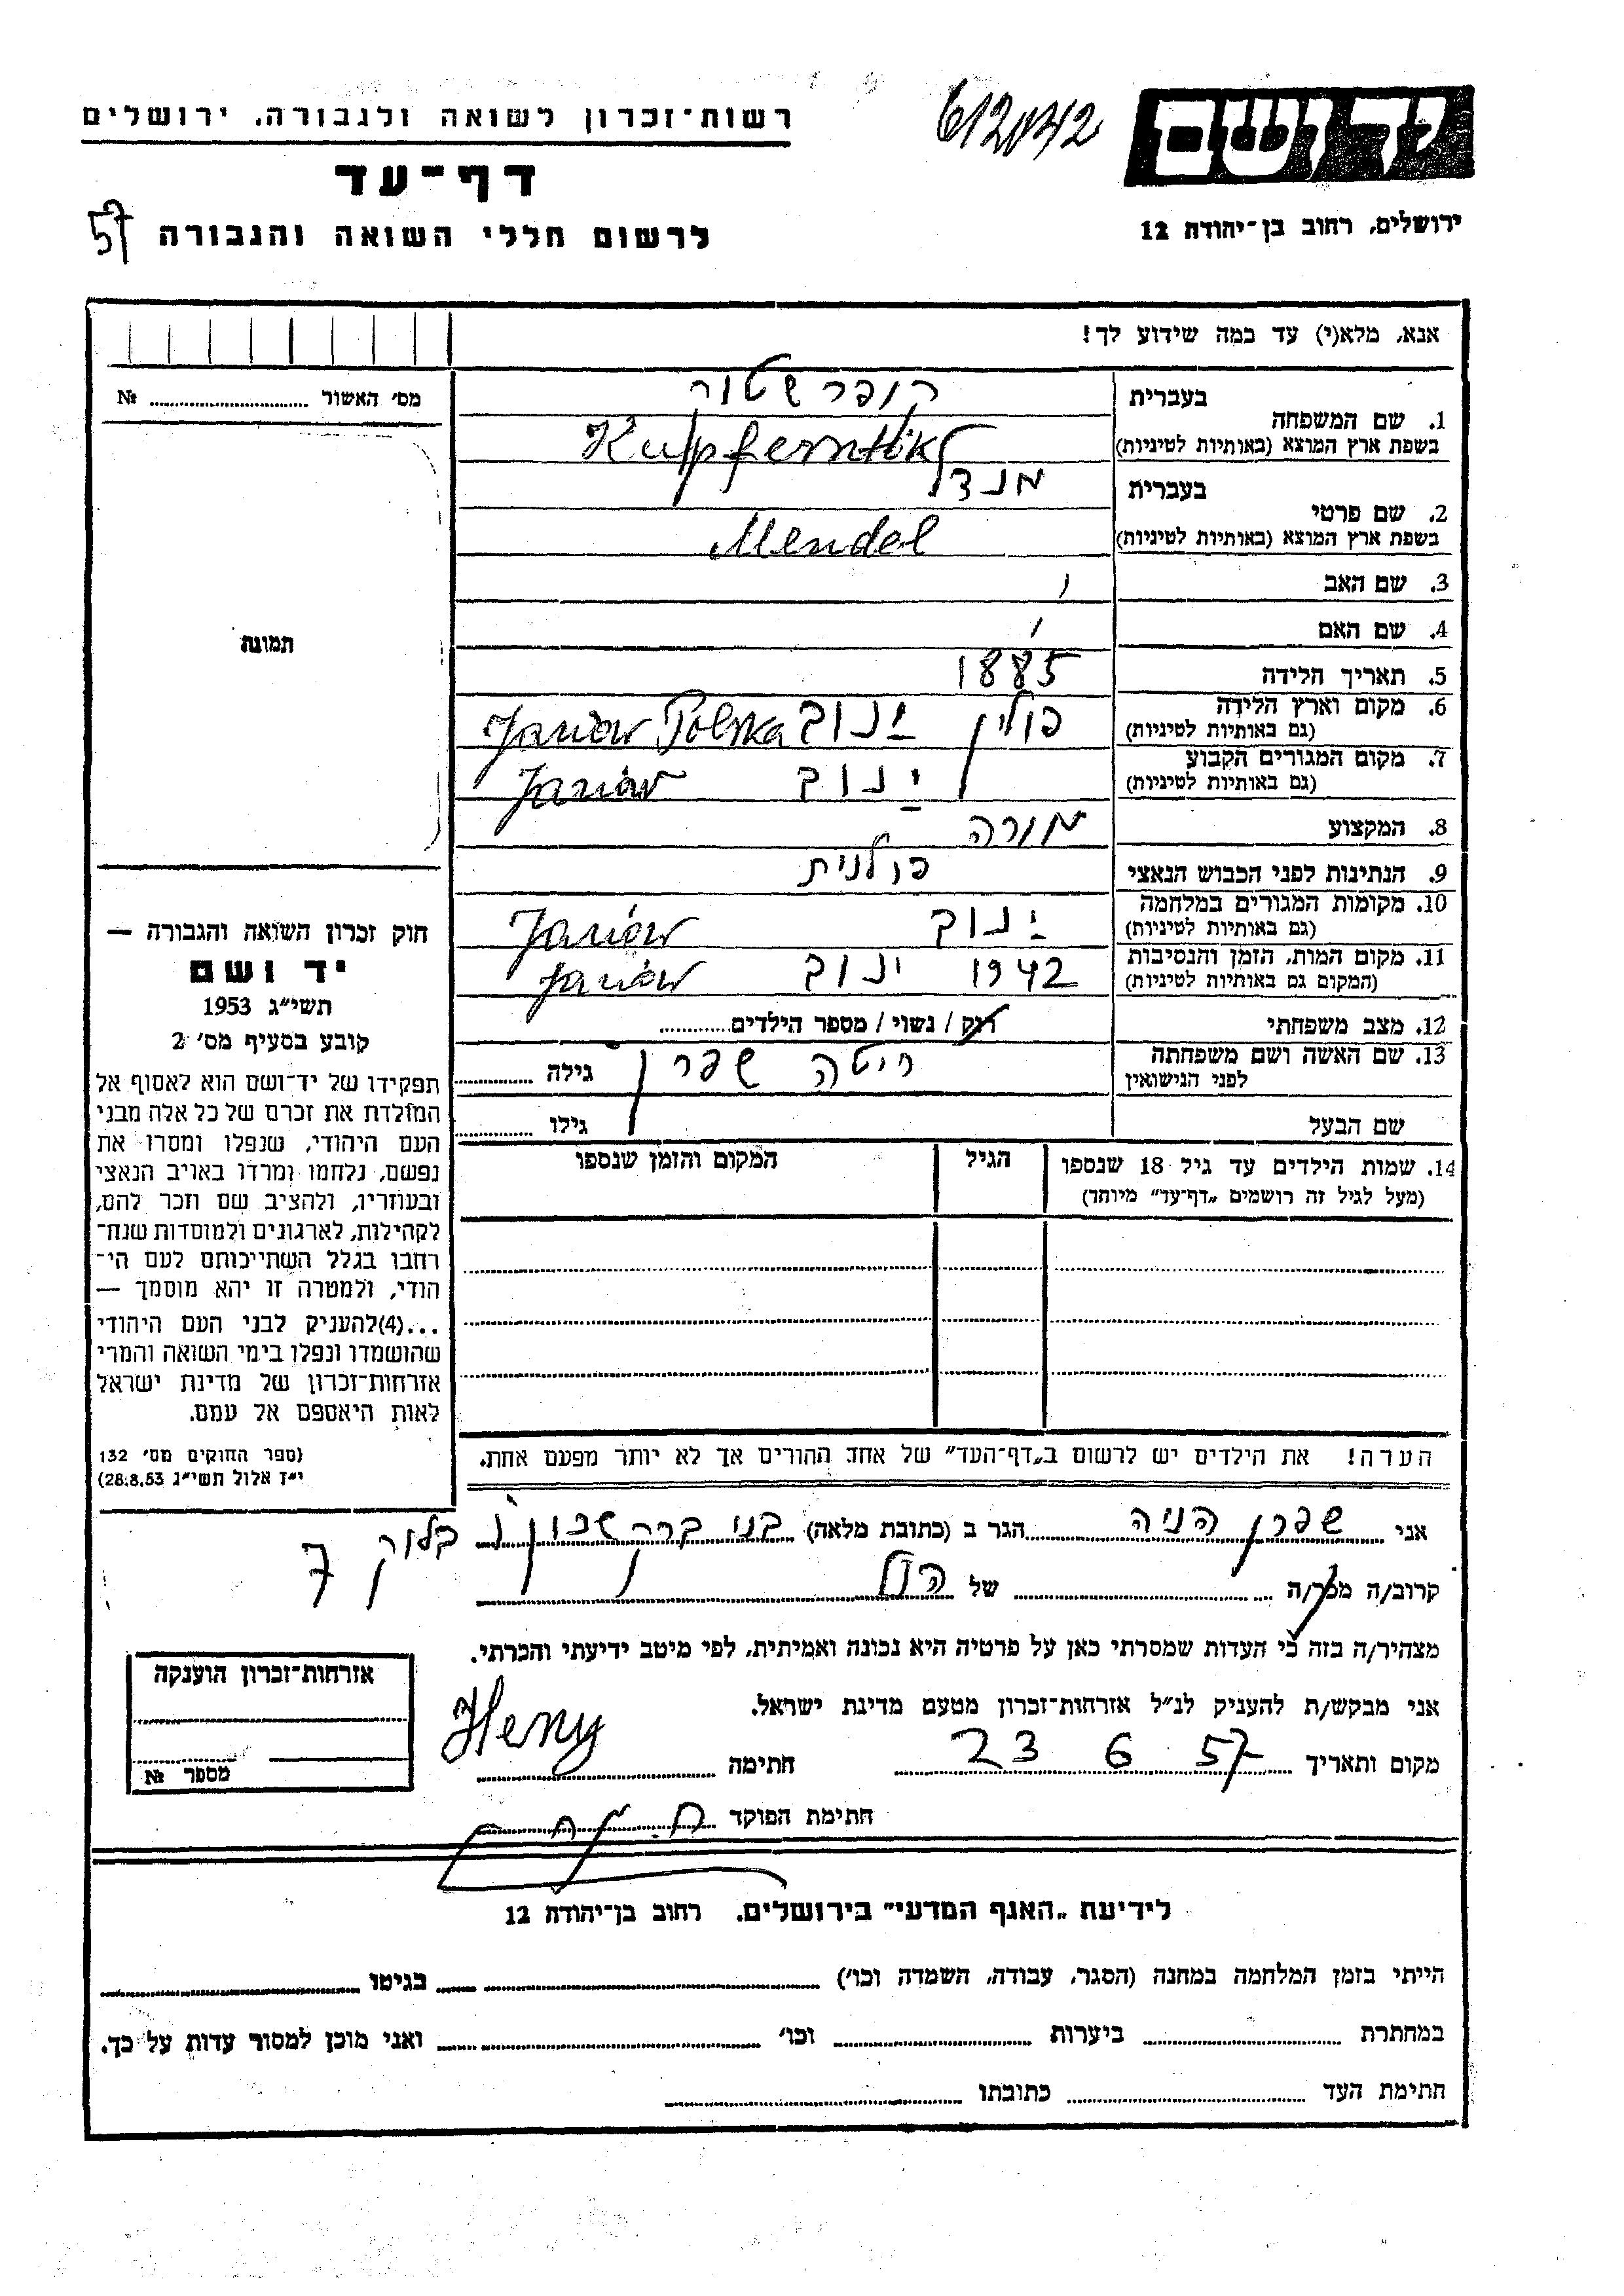 רשות־זכרון לשואה ולגבורה. ירושלים
612042
יד ושם
דף־עד
לרשום חללי השואה והגבורה
57
ירושלים, רחוב בן־יהודה 12
אנא, מלא(י) עד כמה שידוע לך!
מס׳ האשור № 
תמונה
בעברית
1. שם המשפחה
בשפת ארץ המוצא (באותיות לטיניות)
בעברית מנדל
2. שם פרטי
בשפת ארץ המוצא (באותיות לטיניות) Mendel
3. שם האב
4. שם האם
5. תאריך הלידה 1885
6. מקום וארץ הלידה פולין ינוב Janów Polska
(גם באותיות לטיניות)
7. מקום המגורים הקבוע ינוב Janów
(גם באותיות לטיניות)
8. המקצוע מורה
9. הנתינות לפני הכבוש הנאצי פולנית
10. מקומות המגורים במלחמה ינוב Janów
(גם באותיות לטיניות)
11. מקום המות, הזמן והנסיבות 1942 ינוב Janów
(המקום גם באותיות לטיניות)
12. מצב משפחתי רוק / נשוי / מספר הילדים
13. שם האשה ושם משפחתה שפרן גילה
לפני הנישואין
שם הבעל גילו
14. שמות הילדים עד גיל 18 שנספו הגיל המקום והזמן שנספו
(מעל לגיל זה רושמים „דף־עד" מיוחד)
הערה! את הילדים יש לרשום ב„דף־העד" של אחד ההורים אך לא יותר מפעם אחת.
חוק זכרון השואה והגבורה —
יד ושם
תשי״ג 1953
קובע בסעיף מס׳ 2
תפקידו של יד־ושם הוא לאסוף אל
המולדת את זכרם של כל אלה מבני
העם היהודי, שנפלו ומסרו את
נפשם, נלחמו ומרדו באויב הנאצי
ובעוזריו, ולהציב שם וזכר להם,
לקהילות, לארגונים ולמוסדות שנח־
רחבו בגלל השתייכותם לעם הי־
הודי, ולמטרה זו יהא מוסמך —
...(4)להעניק לבני העם היהודי
שהושמדו ונפלו בימי השואה והמרי
אזרחות־זכרון של מדינת ישראל
לאות היאספם אל עמם.
(ספר החוקים מס׳ 132
י״ז אלול תשי״ג 28.8.53)
אני שפרן הניה הגר ב (כתובת מלאה) בני ברק שכון ו בלוק 7
קרוב/ה מכר/ה של
מצהיר/ה בזה כי העדות שמסרתי כאן על פרטיה היא נכונה ואמיתית, לפי מיטב ידיעתי והכרתי.
אני מבקש/ת להעניק לנ״ל אזרחות־זכרון מטעם מדינת ישראל.
מקום ותאריך 23 6 57 חתימה Heny
חתימת הפוקד
אזרחות־זכרון הוענקה
מספר №
לידיעת „האגף המדעי" בירושלים. רחוב בן־יהודה 12
הייתי בזמן המלחמה במחנה (הסגר, עבודה, השמדה וכו׳) בגיטו
במחתרת ביערות וכו׳ ואני מוכן למסור עדות על כך.
חתימת העד כתובתו